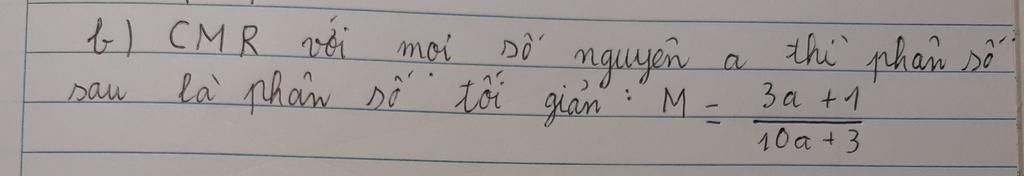 b) CMR với mọi số nguyên a thì phân số
sau là phân số tối giản : M = \frac{3a + 1}{10a + 3}